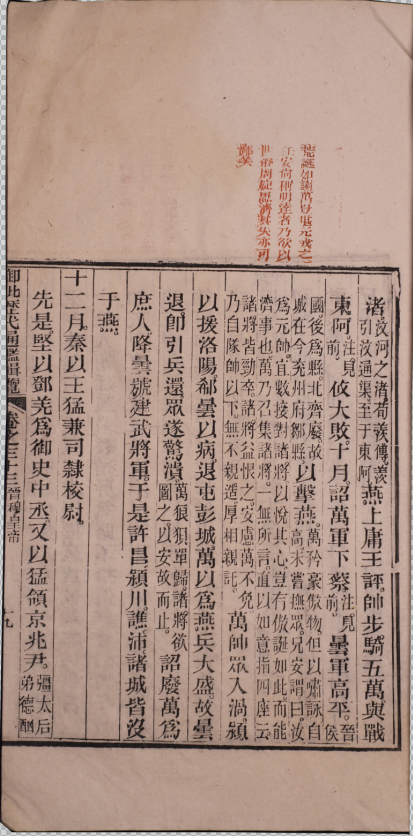 荒誕如謝萬豈堪元戎之
任安尚稱明達者乃欲以
世俗周旋思濟其失亦可
鄙矣
渚汶河之渚荀羨傳羨引汶通渠至于東阿燕上庸王評帥步騎五萬與戰
東阿注見前攸大敗十月詔萬軍下蔡注見前曇軍高平晉侯
國後爲縣北齊廢故城在今兗州府鄒縣以擊燕萬矜豪傲物但以嘯詠自高未嘗撫眾兄安謂曰汝
爲元帥宜數接對諸將以悅其心豈有傲誕如此而能
濟事也萬乃召集諸將一無所言直以如意指四座云
諸將皆勁卒諸將益恨之安慮萬不免乃自隊帥以下無不親造厚相親託萬帥眾入渦潁
以援洛陽郗曇以病退屯彭城萬以爲燕兵大盛故曇
退卽引兵還眾遂驚潰萬狼狽單歸諸將欲圖之以安故而止詔廢萬爲
庶人降曇號建武將軍于是許昌潁川譙沛諸城皆沒
于燕
十二月秦以王猛兼司隸校尉
先是堅以鄧羌爲御史中丞又以猛領京兆尹彊太后弟德酗
御批歷代通鑑輯覽 卷之三十三 晉穆皇帝